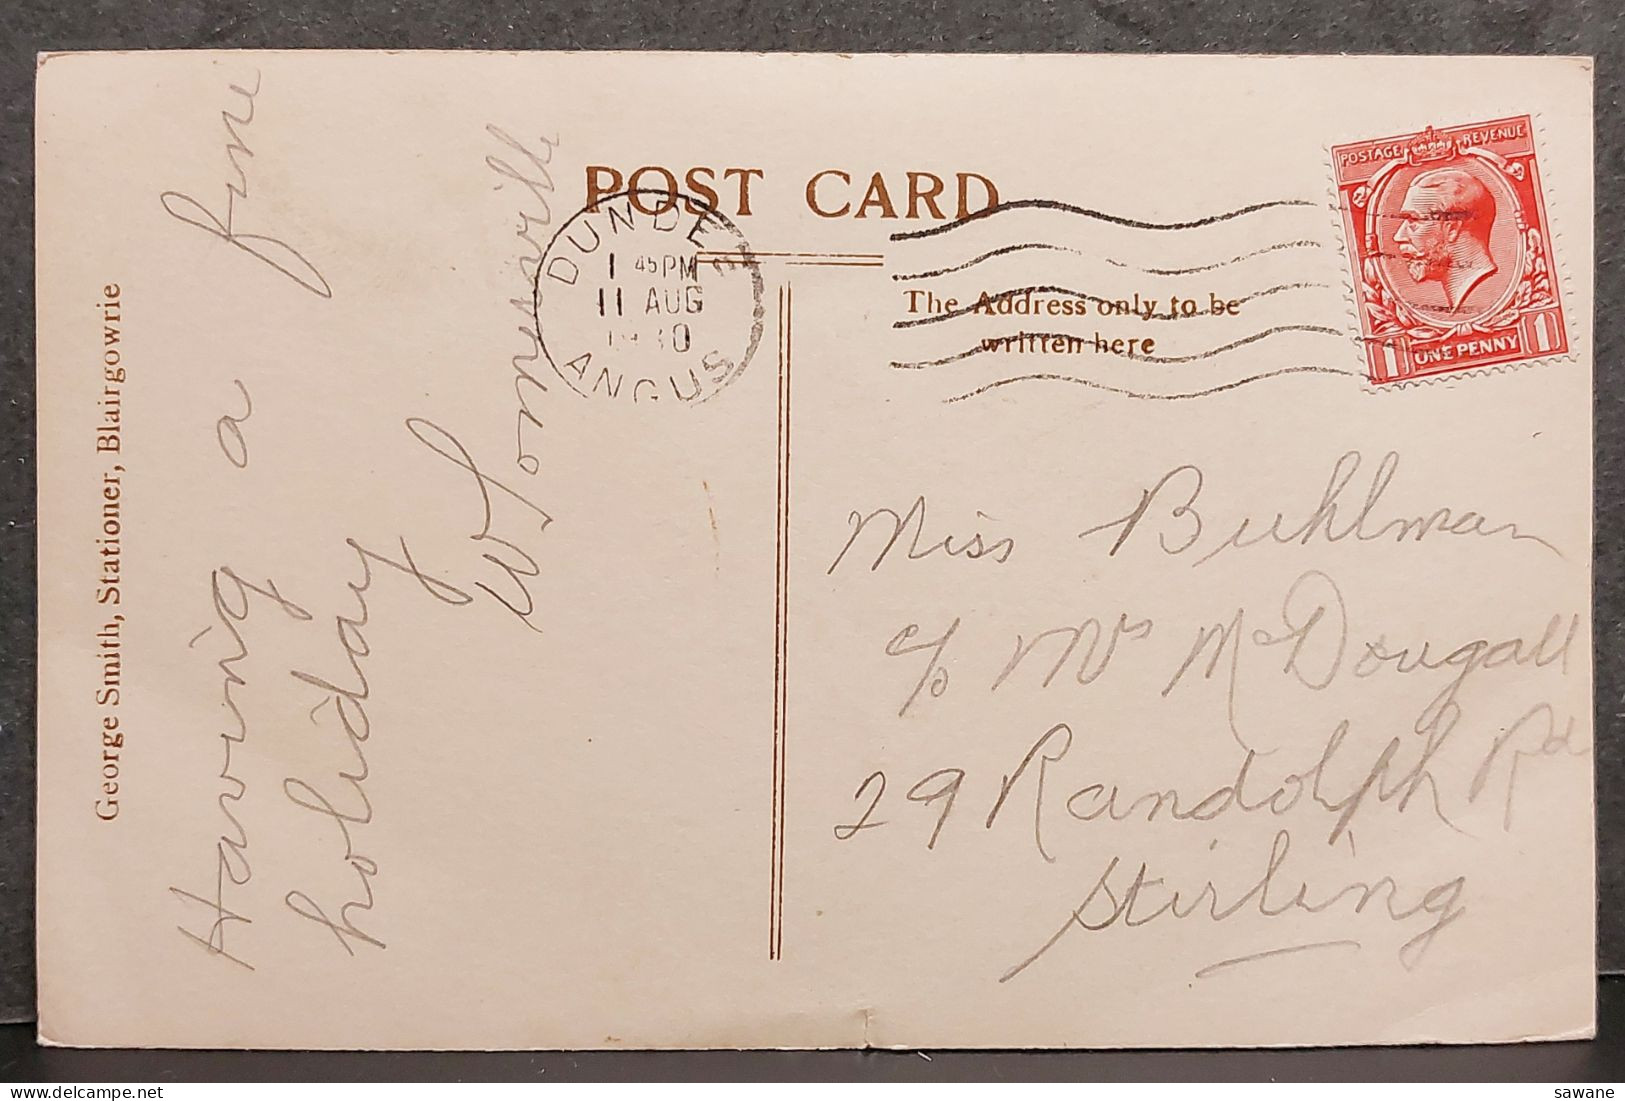 POST CARD
The Address only to be
written here
George Smith, Stationer, Blairgowrie
Having a fine
holiday
DUNDEE
1 45 PM
11 AUG
1930
ANGUS
POSTAGE REVENUE
1 ONE PENNY 1
Miss Buhlman
c/o Mrs McDougall
29 Randolph Rd
Stirling
sawane